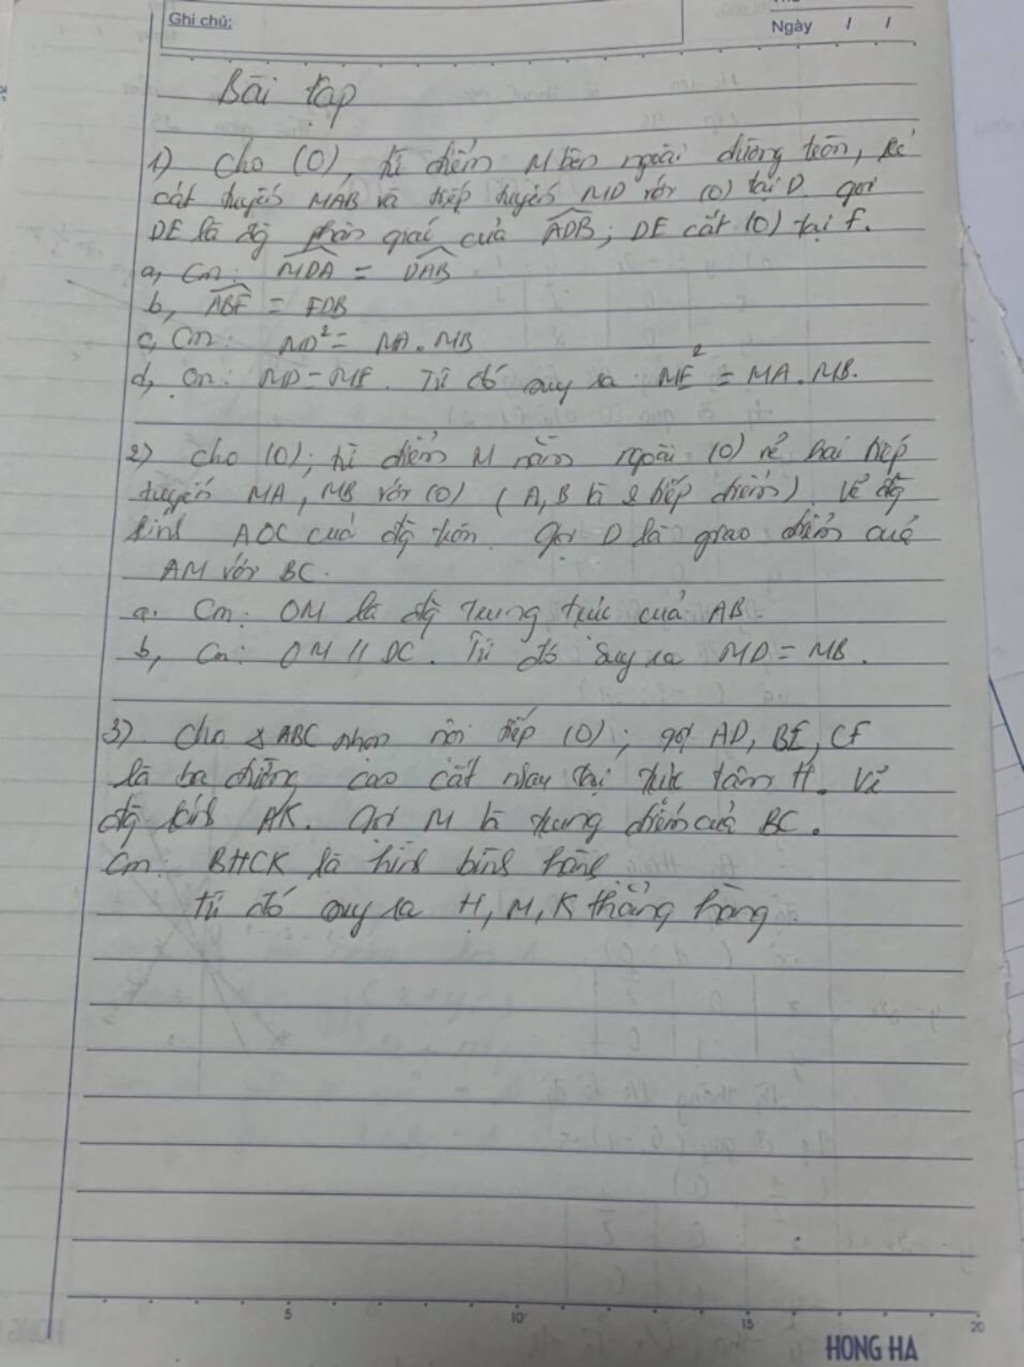 Ghi chú:
Ngày / /
Bài tập
1) Cho (O), từ điểm M bên ngoài đường tròn, kẻ
cát tuyến MAB và tiếp tuyến MD với (O) tại D. gọi
DE là đg phân giác của ADB; DE cắt (O) tại F.
a, Cm: MDA = DAB
b, ABF = FDB
c, Cm: MD² = MA.MB
d, Cm: MD = ME. Từ đó suy ra: ME² = MA.MB.
2) Cho (O); từ điểm M nằm ngoài (O) vẽ hai tiếp
tuyến MA, MB với (O) (A, B là 2 tiếp điểm). Vẽ đg
kính AOC của đg tròn. gọi D là giao điểm của
AM với BC.
a. Cm: OM là đg trung trực của AB.
b, Cm: OM // DC. Từ đó suy ra MD = MB.
3) Cho ABC nhọn nội tiếp (O); gọi AD, BE, CF
là ba đường cao cắt nhau tại trực tâm H. Vẽ
đg kính AK. Gọi M là trung điểm của BC.
Cm: BHCK là hình bình hành
từ đó suy ra H, M, K thẳng hàng.
5 10 15 20
HONG HA